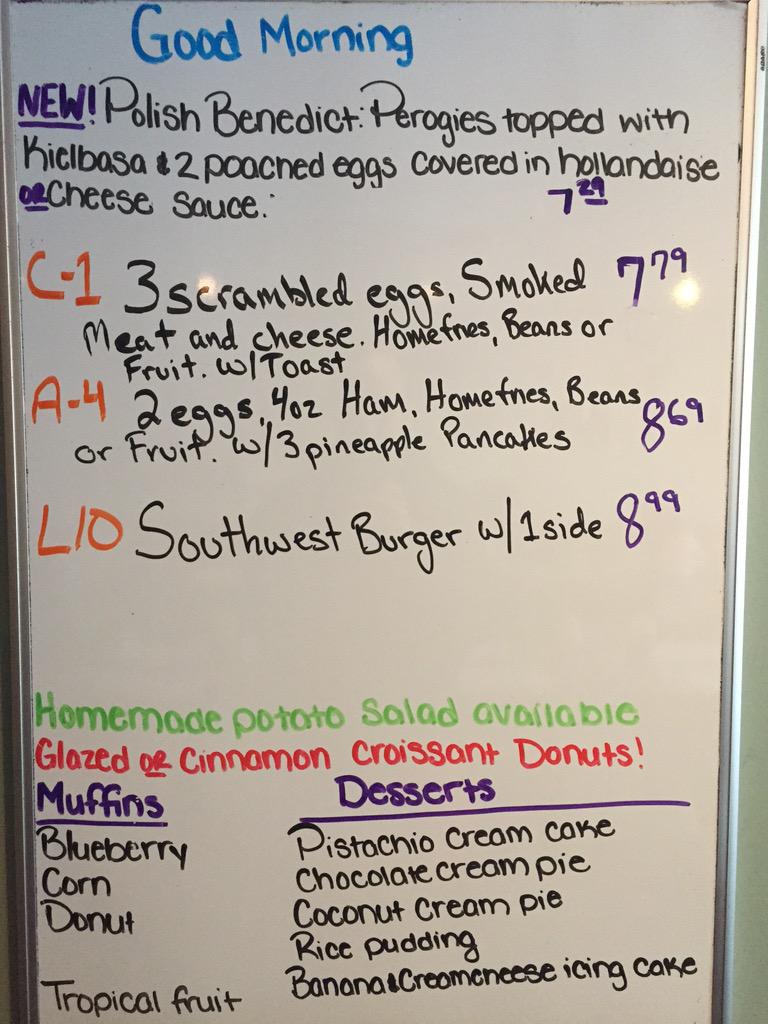 Good Morning
NEW! Polish Benedict: Perogies topped with
Kielbasa & 2 poached eggs covered in hollandaise
or Cheese sauce. 7 29
C-1 3 scrambled eggs, Smoked 7 79
Meat and cheese. Homefries, Beans or
Fruit. w/Toast
A-4 2 eggs, 4oz Ham, Homefries, Beans 8 69
or Fruit. w/3 pineapple Pancakes
L10 Southwest Burger w/1 side 8 99
Homemade potato Salad available
Glazed or Cinnamon Croissant Donuts!
Muffins
Blueberry
Corn
Donut
Tropical fruit
Desserts
Pistachio cream cake
Chocolate cream pie
Coconut cream pie
Rice pudding
Banana & Creamcheese icing cake